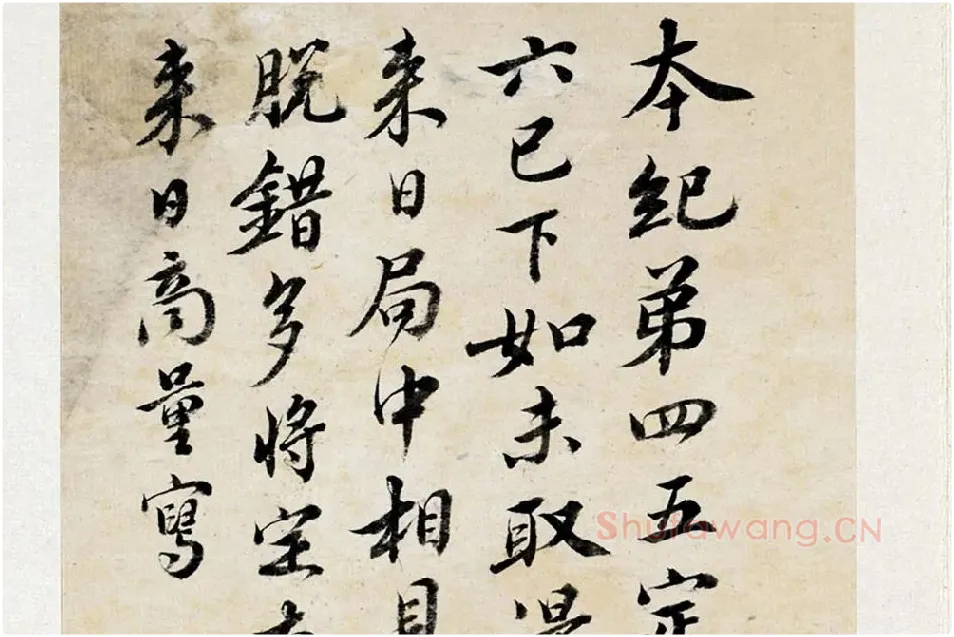 本紀弟四五定
六已下如未取得
来日局中相見
脱錯多將定本
来日商量寫
Shufawang.CN